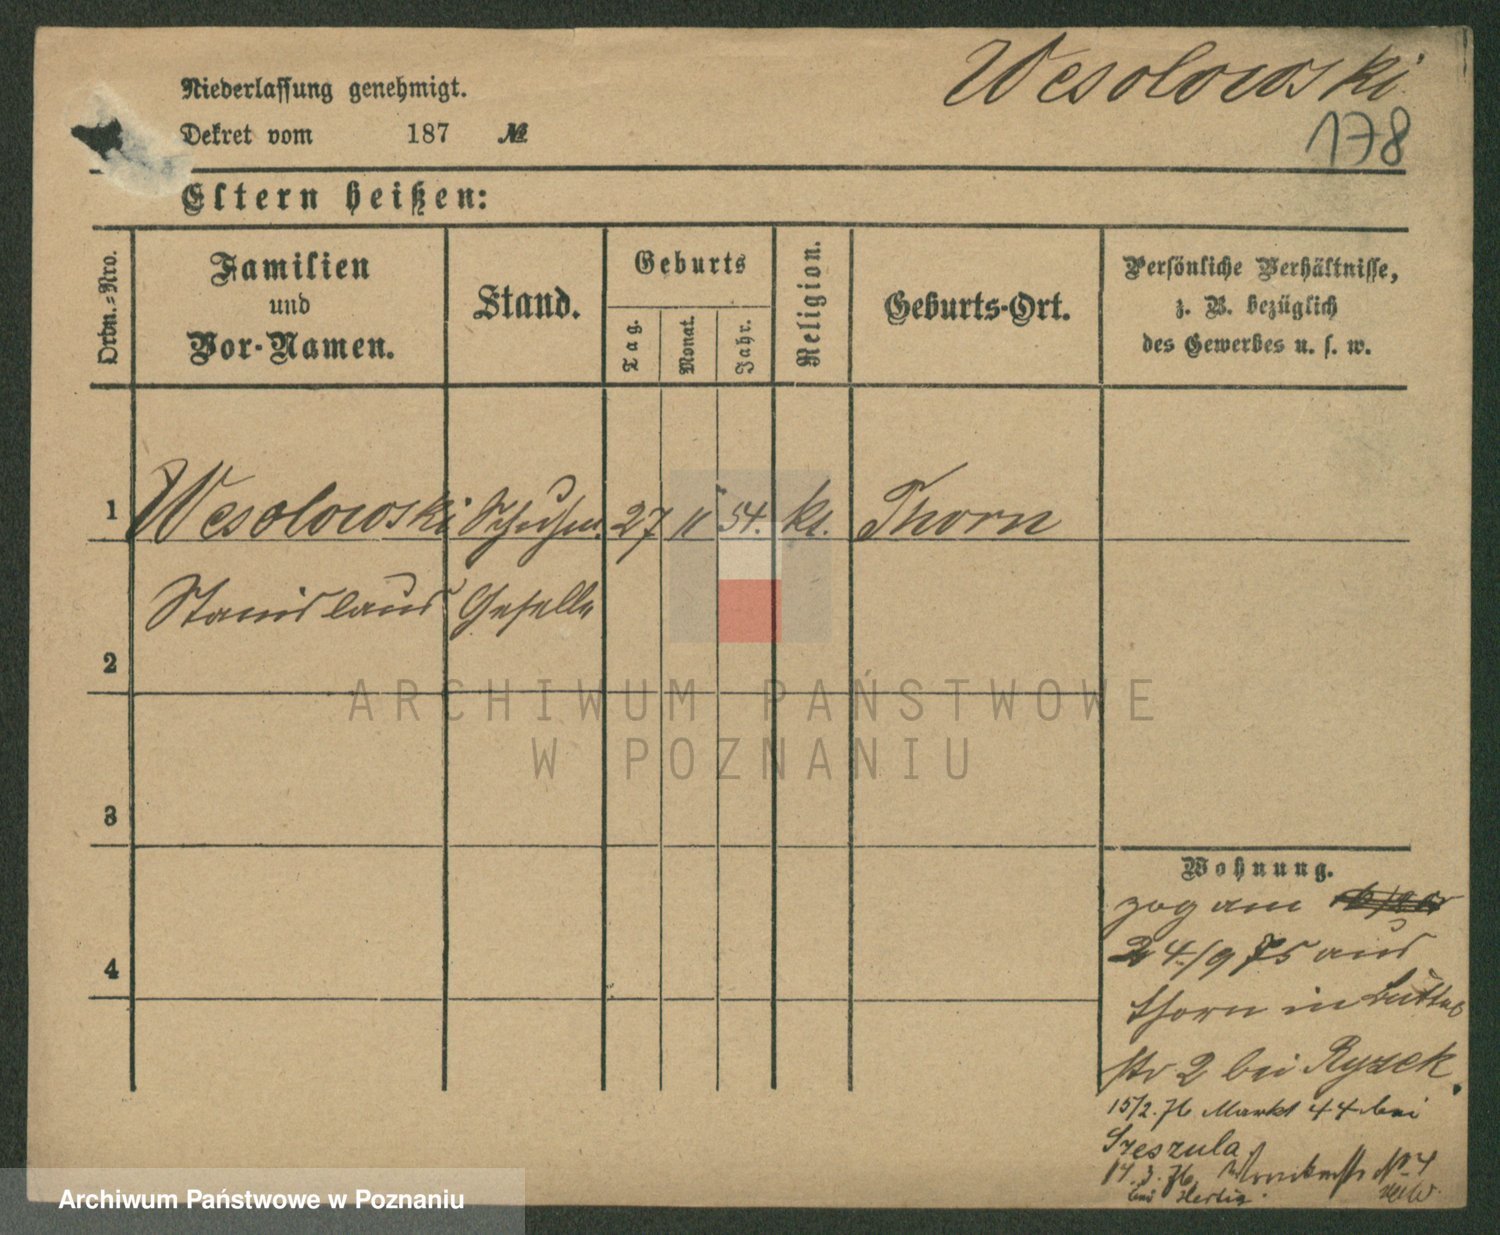 Wesolowski
178
Niederlassung genehmigt.
Dekret vom 187 №
Eltern heißen:
Ordn.=Nro.
Familien
und
Vor-Namen.
Stand.
Geburts
Tag.
Monat.
Jahr.
Religion.
Geburts-Ort.
Persönliche Verhältnisse,
z. B. bezüglich
des Gewerbes u. s. w.
1 Wesolowski Schuhm. 27 11 54. kt. Thorn
Stanislaus Geselle
2
3
4
Wohnung.
zog am
24/9 75 aus
Thorn in
str 2 bei Ryzek.
15/2. 76 Markt 44 bei
Szeszula
14. 3. 76. No 4
bei Hertig.
ARCHIWUM PAŃSTWOWE
W POZNANIU
Archiwum Państwowe w Poznaniu